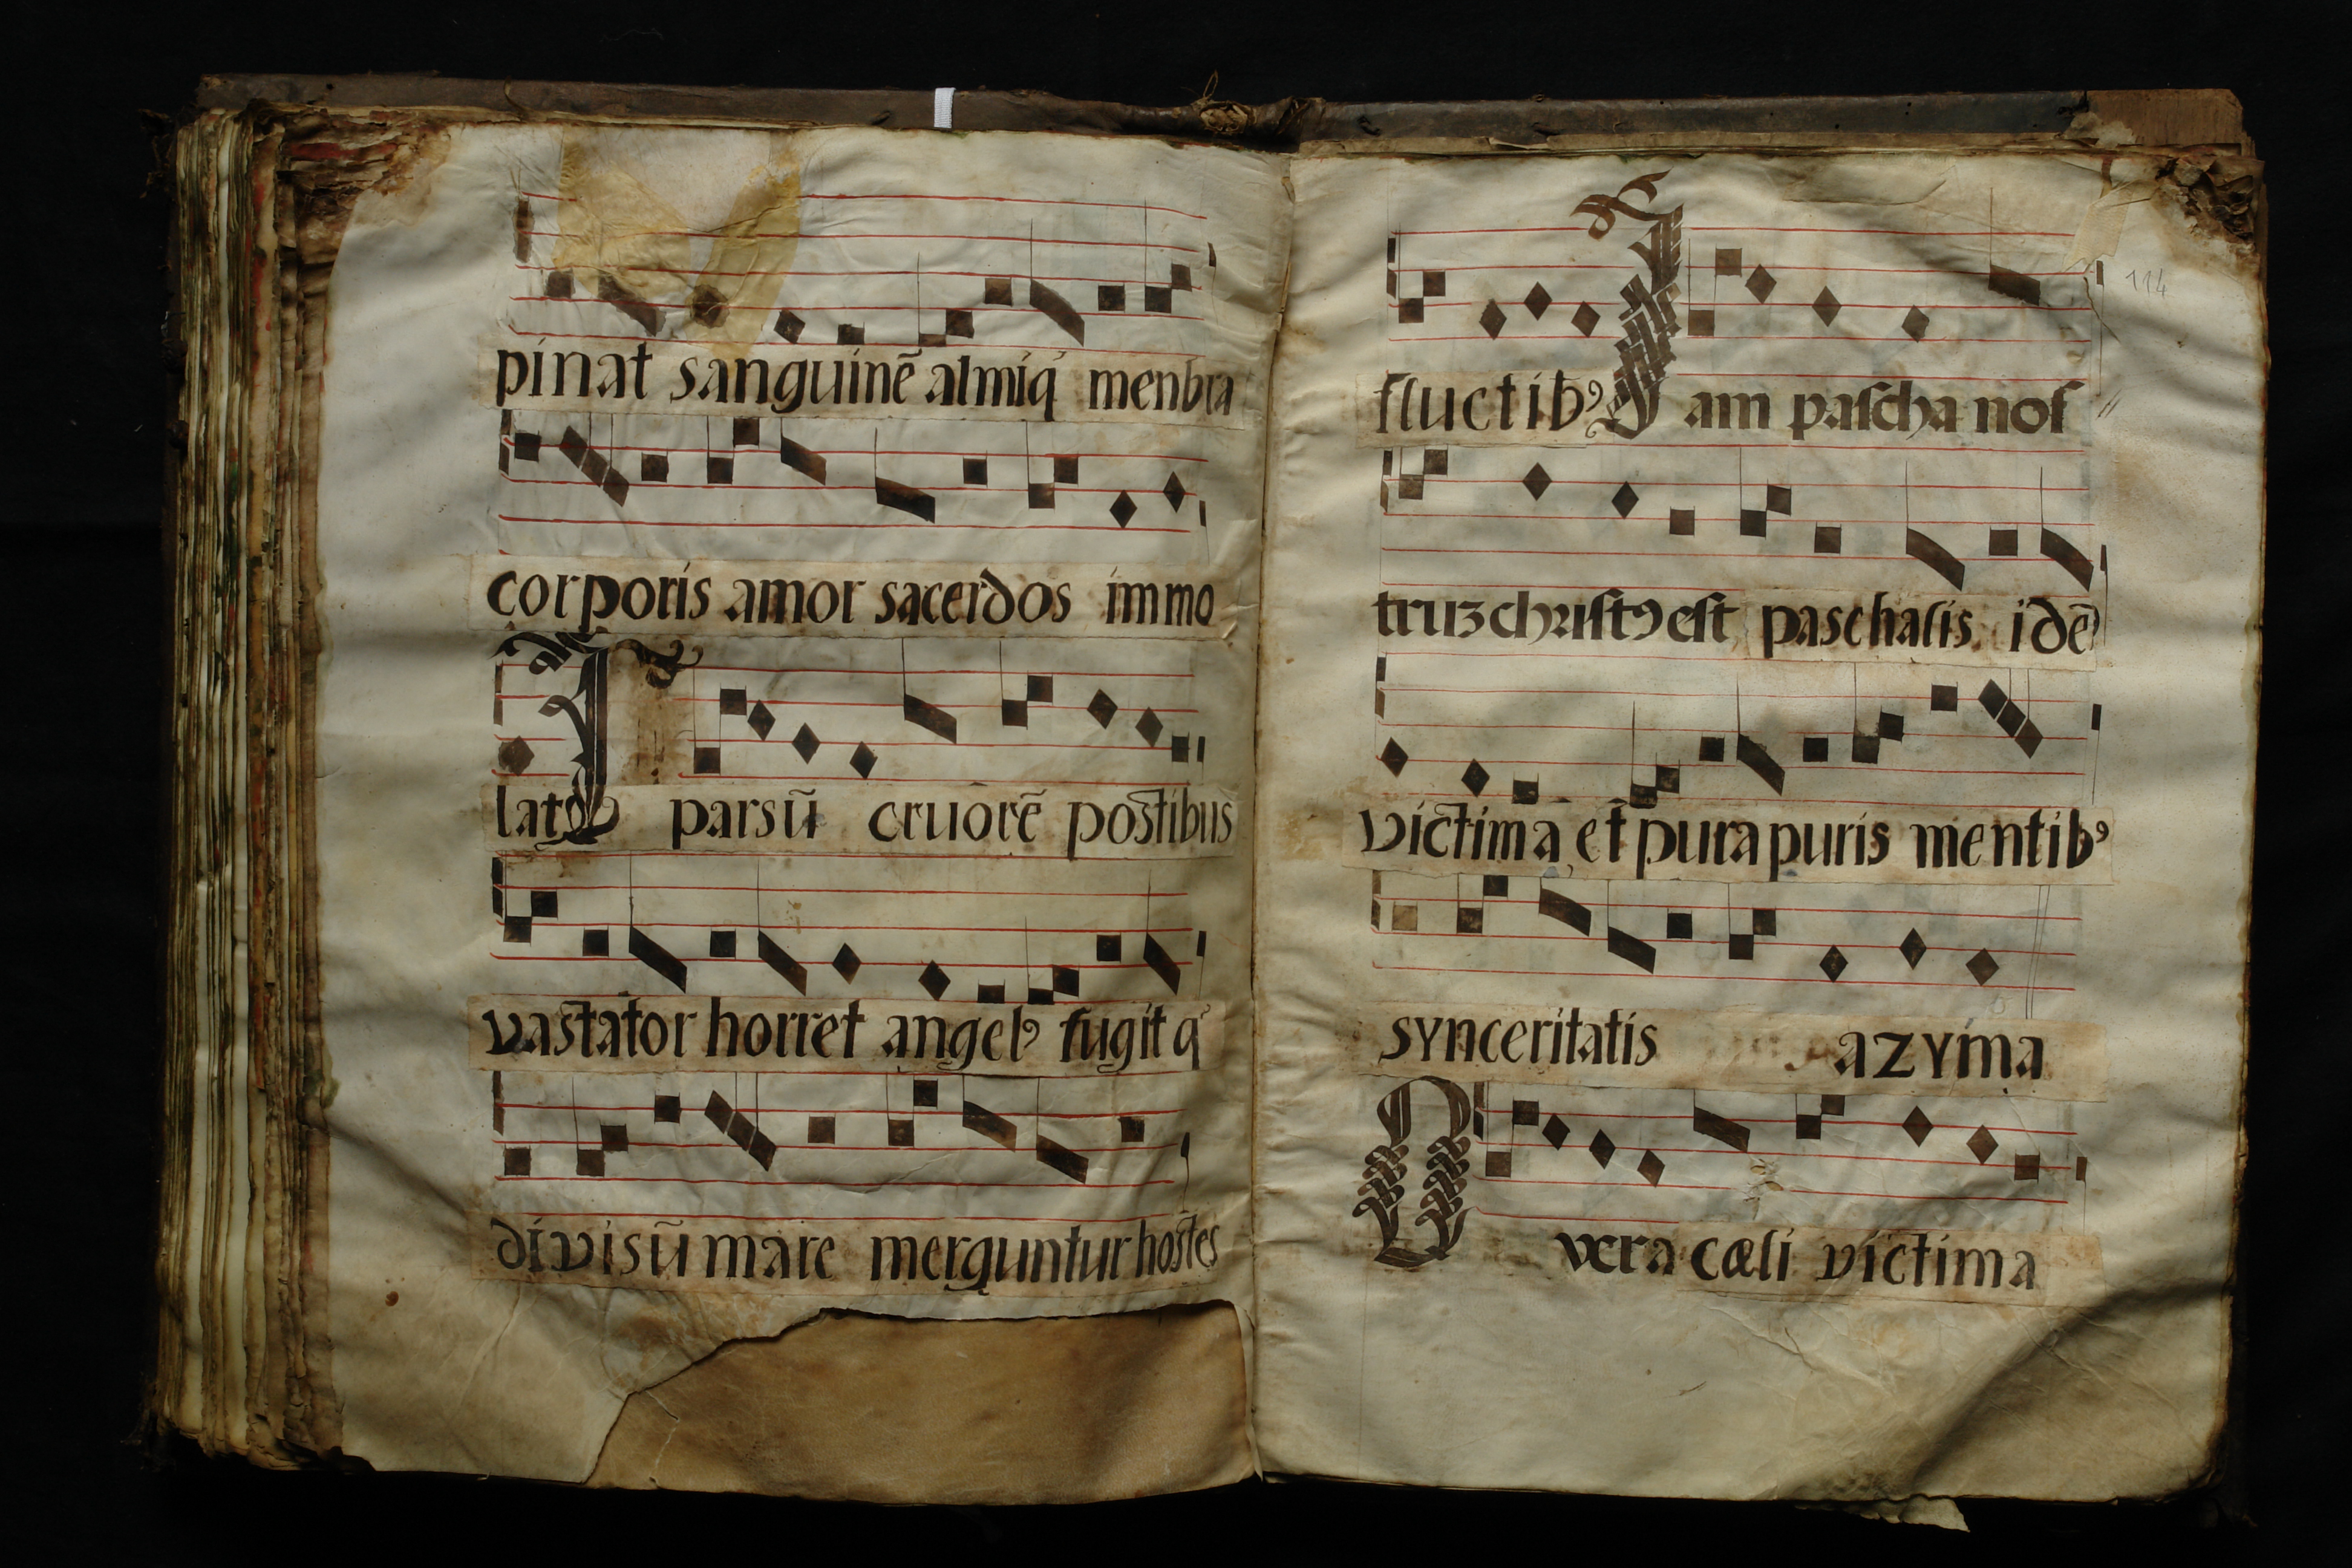 pinat sanguinē almiq́ menbra
corporis amor sacerdos immo
latꝰ Sparsū cruorē postibus
vastator horret angelꝰ fugitq́
divisū mare merguntur hostes
114
fluctibꝰ Iam paſcha noſ
truz chriſtꝰ eſt paschalis idē
victima et pura puris mentibꝰ
synceritatis azyma
O vera cæli victima